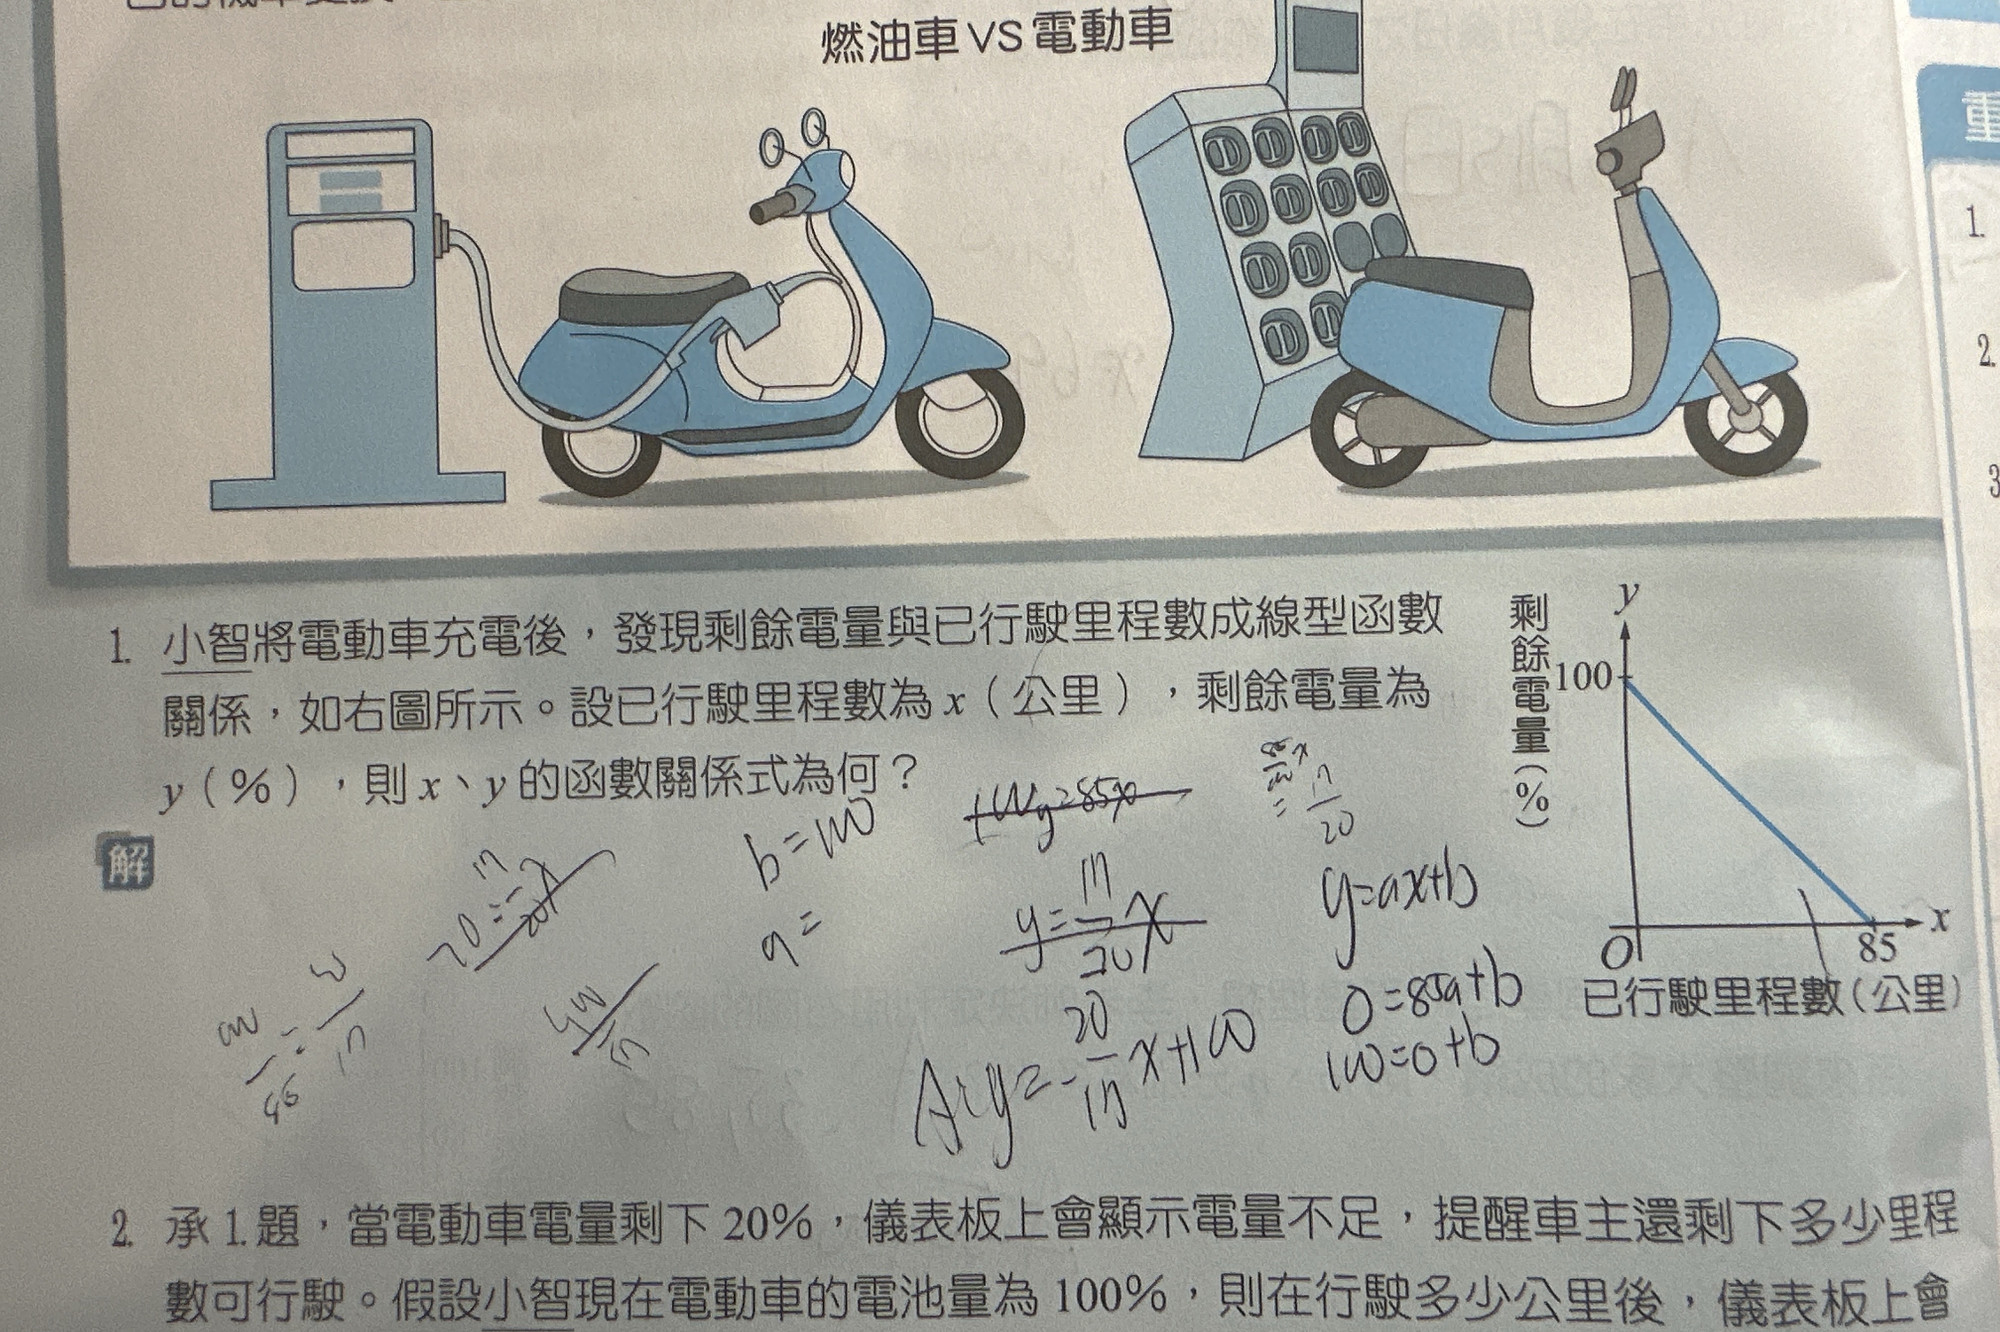 燃油車VS電動車
重
1.
2.
3
1. 小智將電動車充電後，發現剩餘電量與已行駛里程數成線型函數
關係，如右圖所示。設已行駛里程數為 x（公里），剩餘電量為
y（%），則 x、y 的函數關係式為何？
剩餘電量(%)
y
100
O
85
x
已行駛里程數(公里)
解
b=100
a=
100y=85x
y=17/20 x
85/100 x
=17/20
y=ax+b
0=85a+b
100=0+b
20=17/20 x
400/17
A:y=-20/17 x+100
2. 承 1.題，當電動車電量剩下 20%，儀表板上會顯示電量不足，提醒車主還剩下多少里程
數可行駛。假設小智現在電動車的電池量為 100%，則在行駛多少公里後，儀表板上會